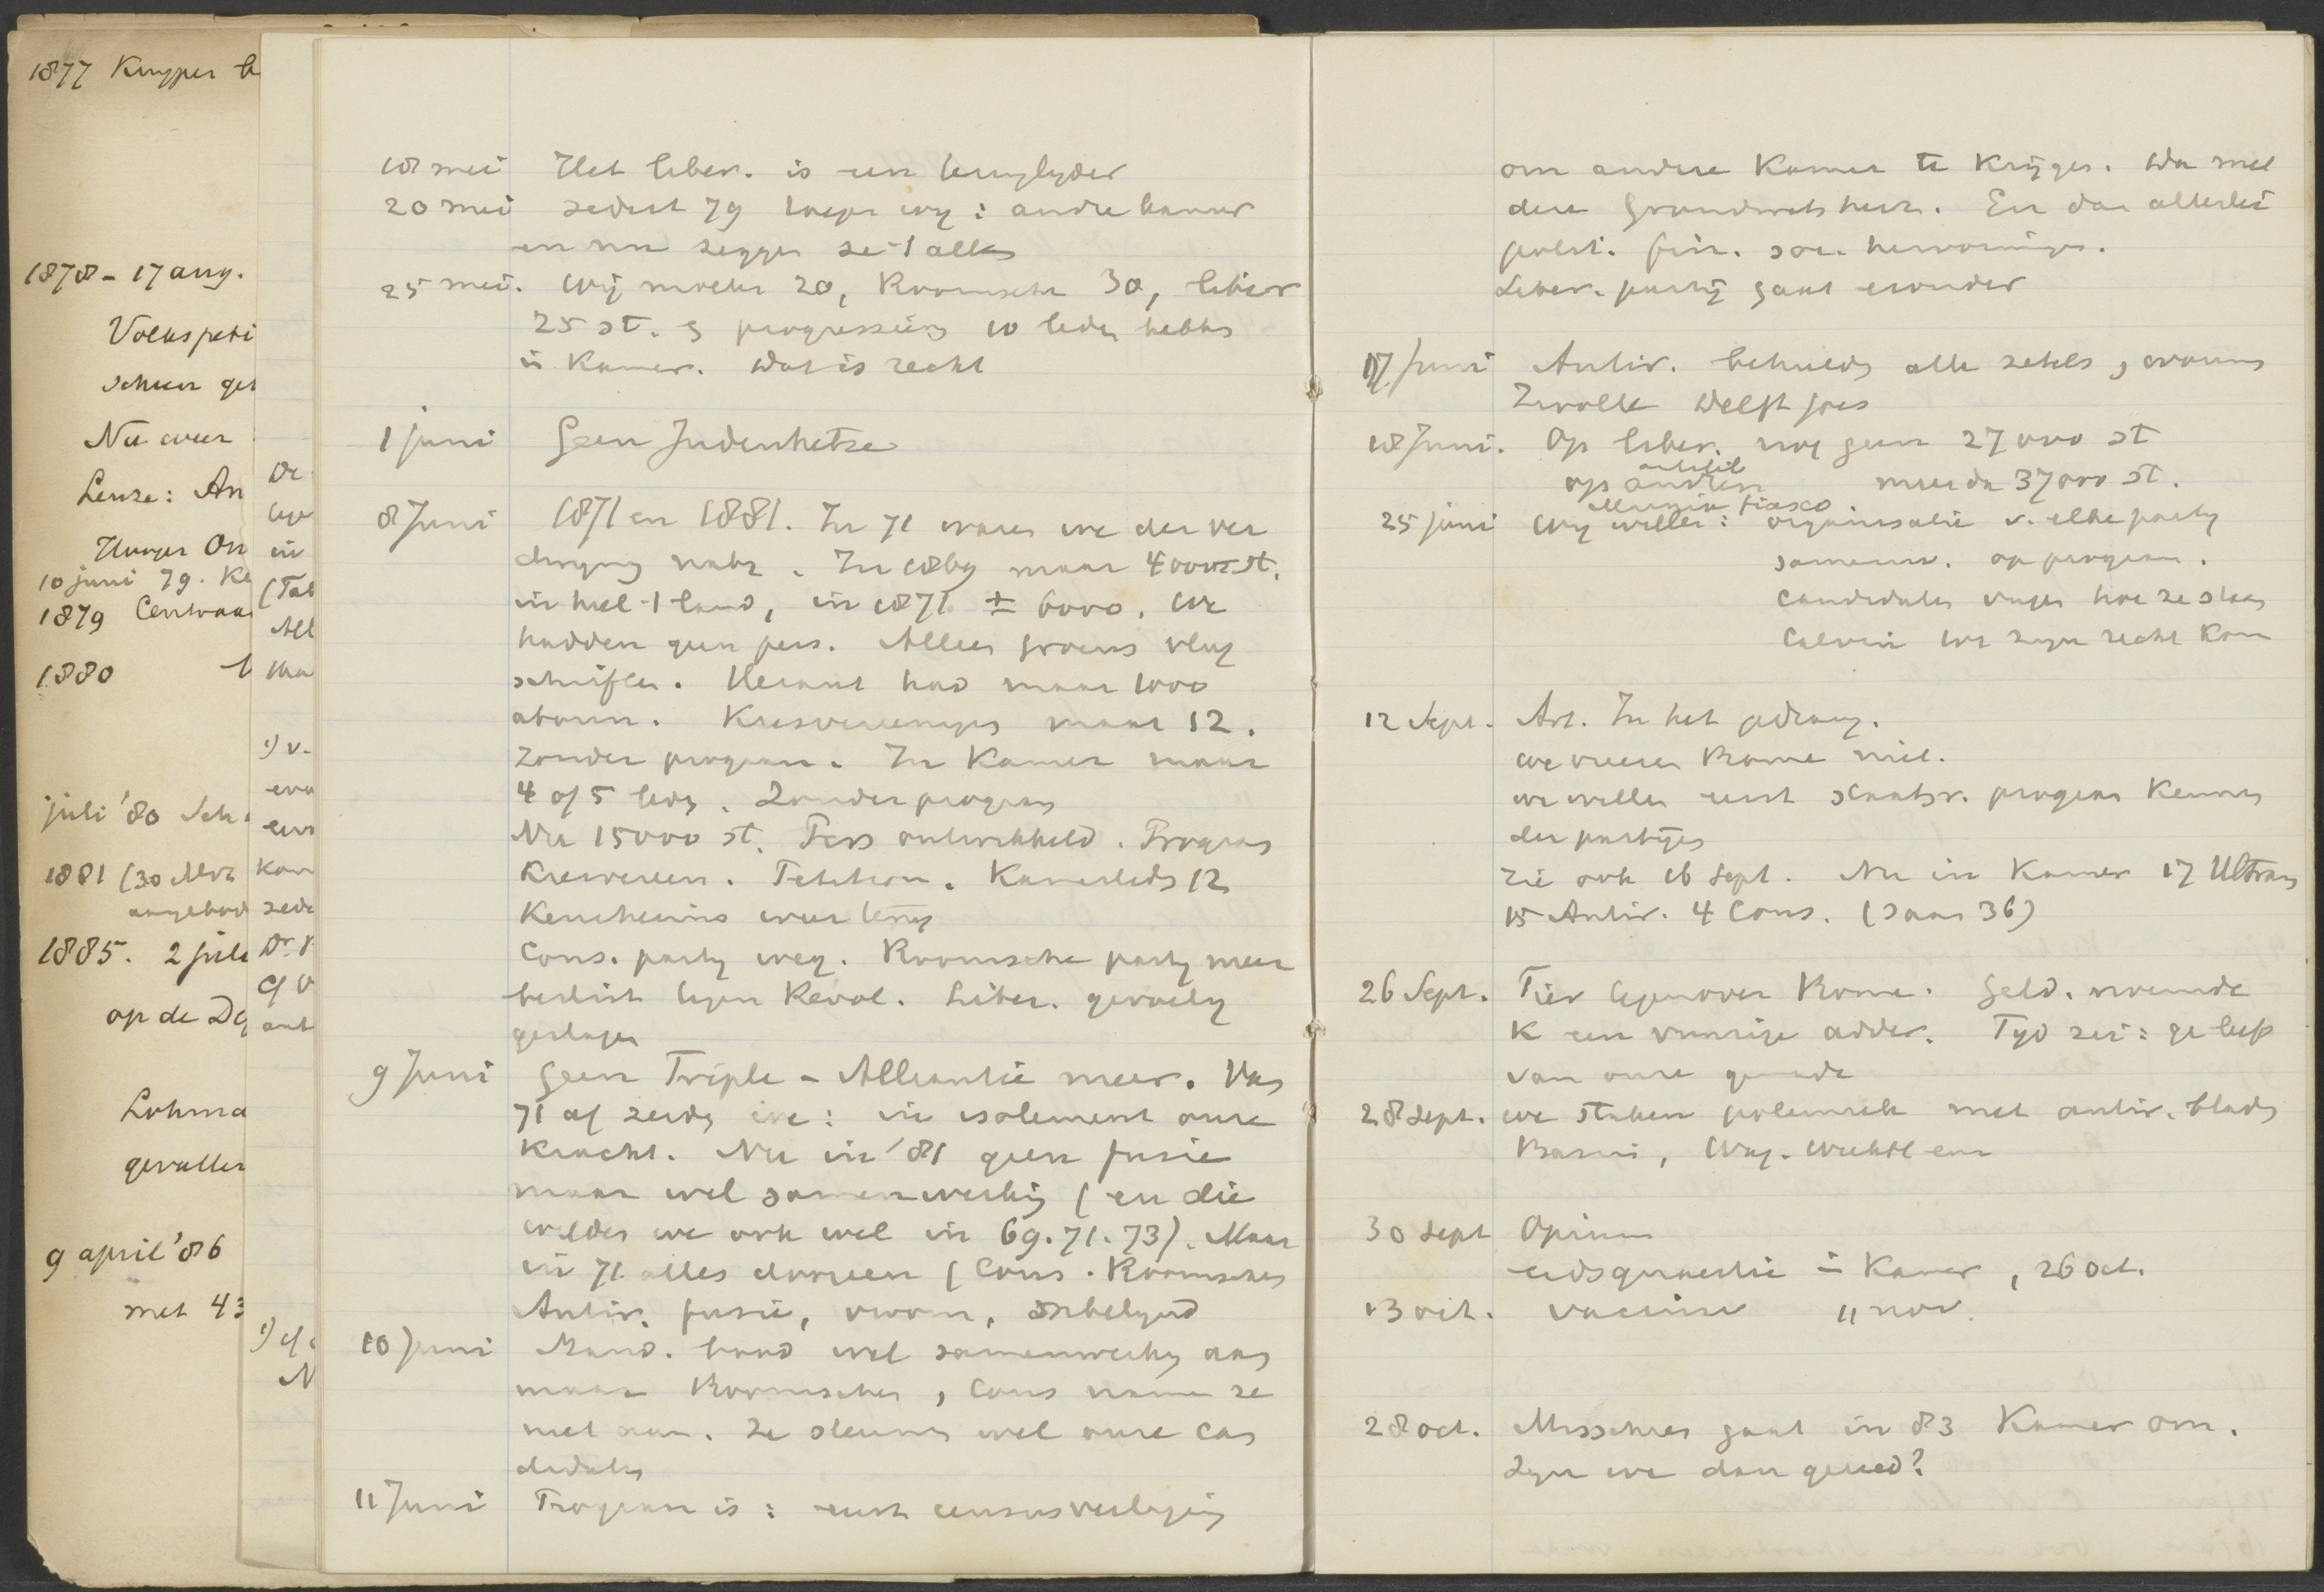 1877 Kuyper
1878 - 17 aug.
Volkspeti
Nu weer
Leuze: An
10 juni 79. Ke
1879 Centraa
1880
juli '80 Sch
1881 (30
aangebod
1885. 2 juli
op de
Lohma
gevallen
9 april '86
met 43
Dr
in
(Tat
All
1) v.
Kam
zede
Dr
1) cf
N
18 mei Het liber. is een teringlyder
20 mei sedert 79 roepen wy: andre kamer
en nu zeggen ze 't alles
25 mei. Wij moeten 20, Roomsche 30, liber
25 st. & progressieven 10 leden hebben
in Kamer. Wat is recht
1 juni Geen Judenhetze
8 Juni 1871 en 1881. In 71 waren we der ver
dwyning nabij. In 1869 maar 4000 st.
in heel 't land, in 1871 ± 6000. We
hadden geen pers. Alleen Groens vlug
schriften. Heraut had maar 1000
abonn. Kiesvereenigen maar 12.
Zonder program. In Kamer maar
4 of 5 leden. Zonder program
Nu 15000 st. Pers ontwikkeld. Program
Kiesvereen. Petition. Kamerleden 12
Keuchenius weer terug
Cons. party weg. Roomsche party meer
beslist tegen Revol. Liber. gevoelig
geslagen
9 Juni Geen Triple - Alliantie meer. Van
71 af zeiden we: in isolement onze
Kracht. Nu in '81 geen fusie
maar wel samenwerking (en die
wilden we ook wel in 69. 71. 73). Maar
in 71 alles dooreen (Cons. Roomschen
Antir. fusie,
10 Juni Stand. bood wel samenwerking aan
maar Roomschen, Cons namen ze
niet aan. Ze steunen wel onze can
didaten
11 Juni Program is: eerst censusverlaging
om andere Kamer te Krijgen. Dan met
deze Grondwetsherz. En dan allerlei
polit. fin. soc. hervormingen.
Liber. partij gaat eronder
17 juni Antir. behielden alle zetels, wonnen
Zwolle Delft Goes
18 Juni. Op liber. nog geen 27000 st
op antilib
andren meer dan 37000 st.
25 juni Wy willen: organisatie v. elke party
samenw. op program.
Candidaten vragen hoe ze staan
12 Sept. Art. In het gedrang.
we vreezen Rome niet.
we willen eerst staatsr. program Kennen
der partijen
Zie ook 16 Sept. Nu in Kamer 17 Ultram
15 Antir. 4 Cons. (saam 36)
26 Sept. Fier tegenover Rome. Geld. noemde
K een venijnige adder. Tyd zei: ge leeft
van onze genade
28 Sept. we staken polemiek met antir. bladen
Bazuin, Wag. Weekbl enz
30 Sept Opium
eedsquaestie in Kamer, 26 Oct.
13 oct. vaccine 11 nov.
28 oct. Misschien gaat in 83 Kamer om.
Zyn we dan gereed?